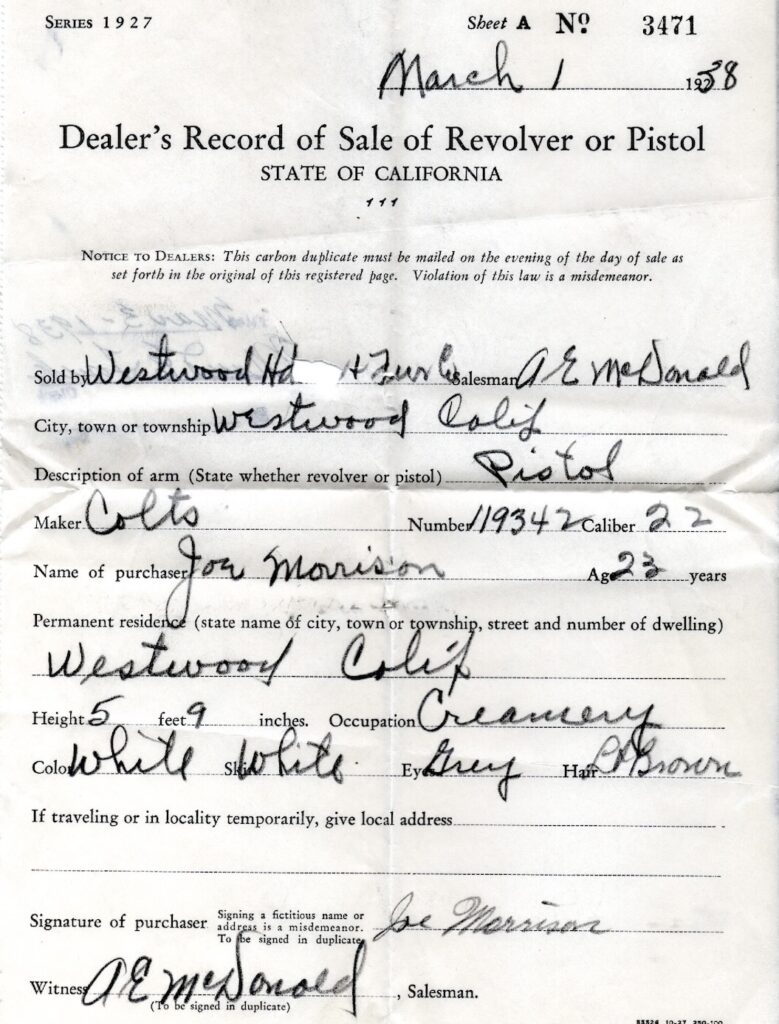 Series 1927 Sheet A No 3471
March 1 1938
Dealer's Record of Sale of Revolver or Pistol
STATE OF CALIFORNIA
Notice to Dealers: This carbon duplicate must be mailed on the evening of the day of sale as
set forth in the original of this registered page. Violation of this law is a misdemeanor.
Sold by Westwood Hd & Furn Co Salesman A E McDonald
City, town or township Westwood Calif
Description of arm (State whether revolver or pistol) Pistol
Maker Colts Number 119342 Caliber 22
Name of purchaser Joe Morrison Age 23 years
Permanent residence (state name of city, town or township, street and number of dwelling)
Westwood Calif
Height 5 feet 9 inches. Occupation Creamery
Color White Skin White Eyes Grey Hair Lt Brown
If traveling or in locality temporarily, give local address
Signature of purchaser Signing a fictitious name or
address is a misdemeanor.
To be signed in duplicate Joe Morrison
Witness A E McDonald, Salesman.
(To be signed in duplicate)